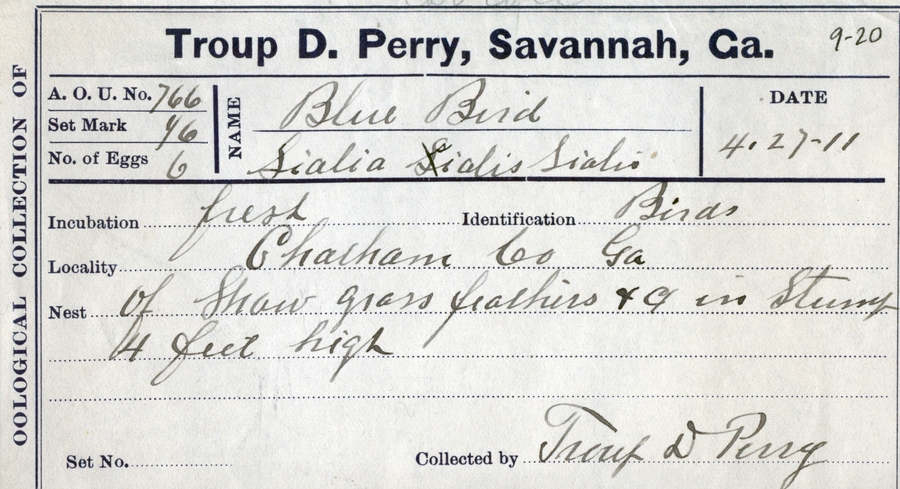 Troup D. Perry, Savannah, Ga. 9-20
OOLOGICAL COLLECTION OF
A. O. U. No. 766
Set Mark
No. of Eggs 6
NAME Blue Bird
Sialia Sialis Sialis
DATE
4.27-11
Incubation fresh Identification Birds
Locality Chatham Co Ga
Nest of Straw grass feathers &c in Stump
4 feet high
Set No.
Collected by Troup D Perry